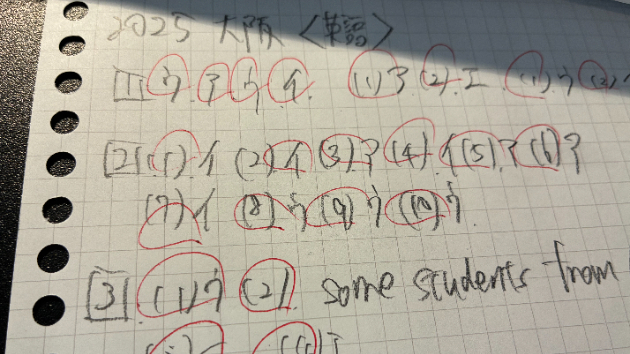 2025 大阪 〈英語〉
[1] ウ ア ウ イ (1) ア (2) エ (1) ウ (2)
[2] (1) イ (2) イ (3) ア (4) イ (5) ア (6) ア
(7) イ (8) ウ (9) ウ (10) ウ
[3] (1) ウ (2) some students from